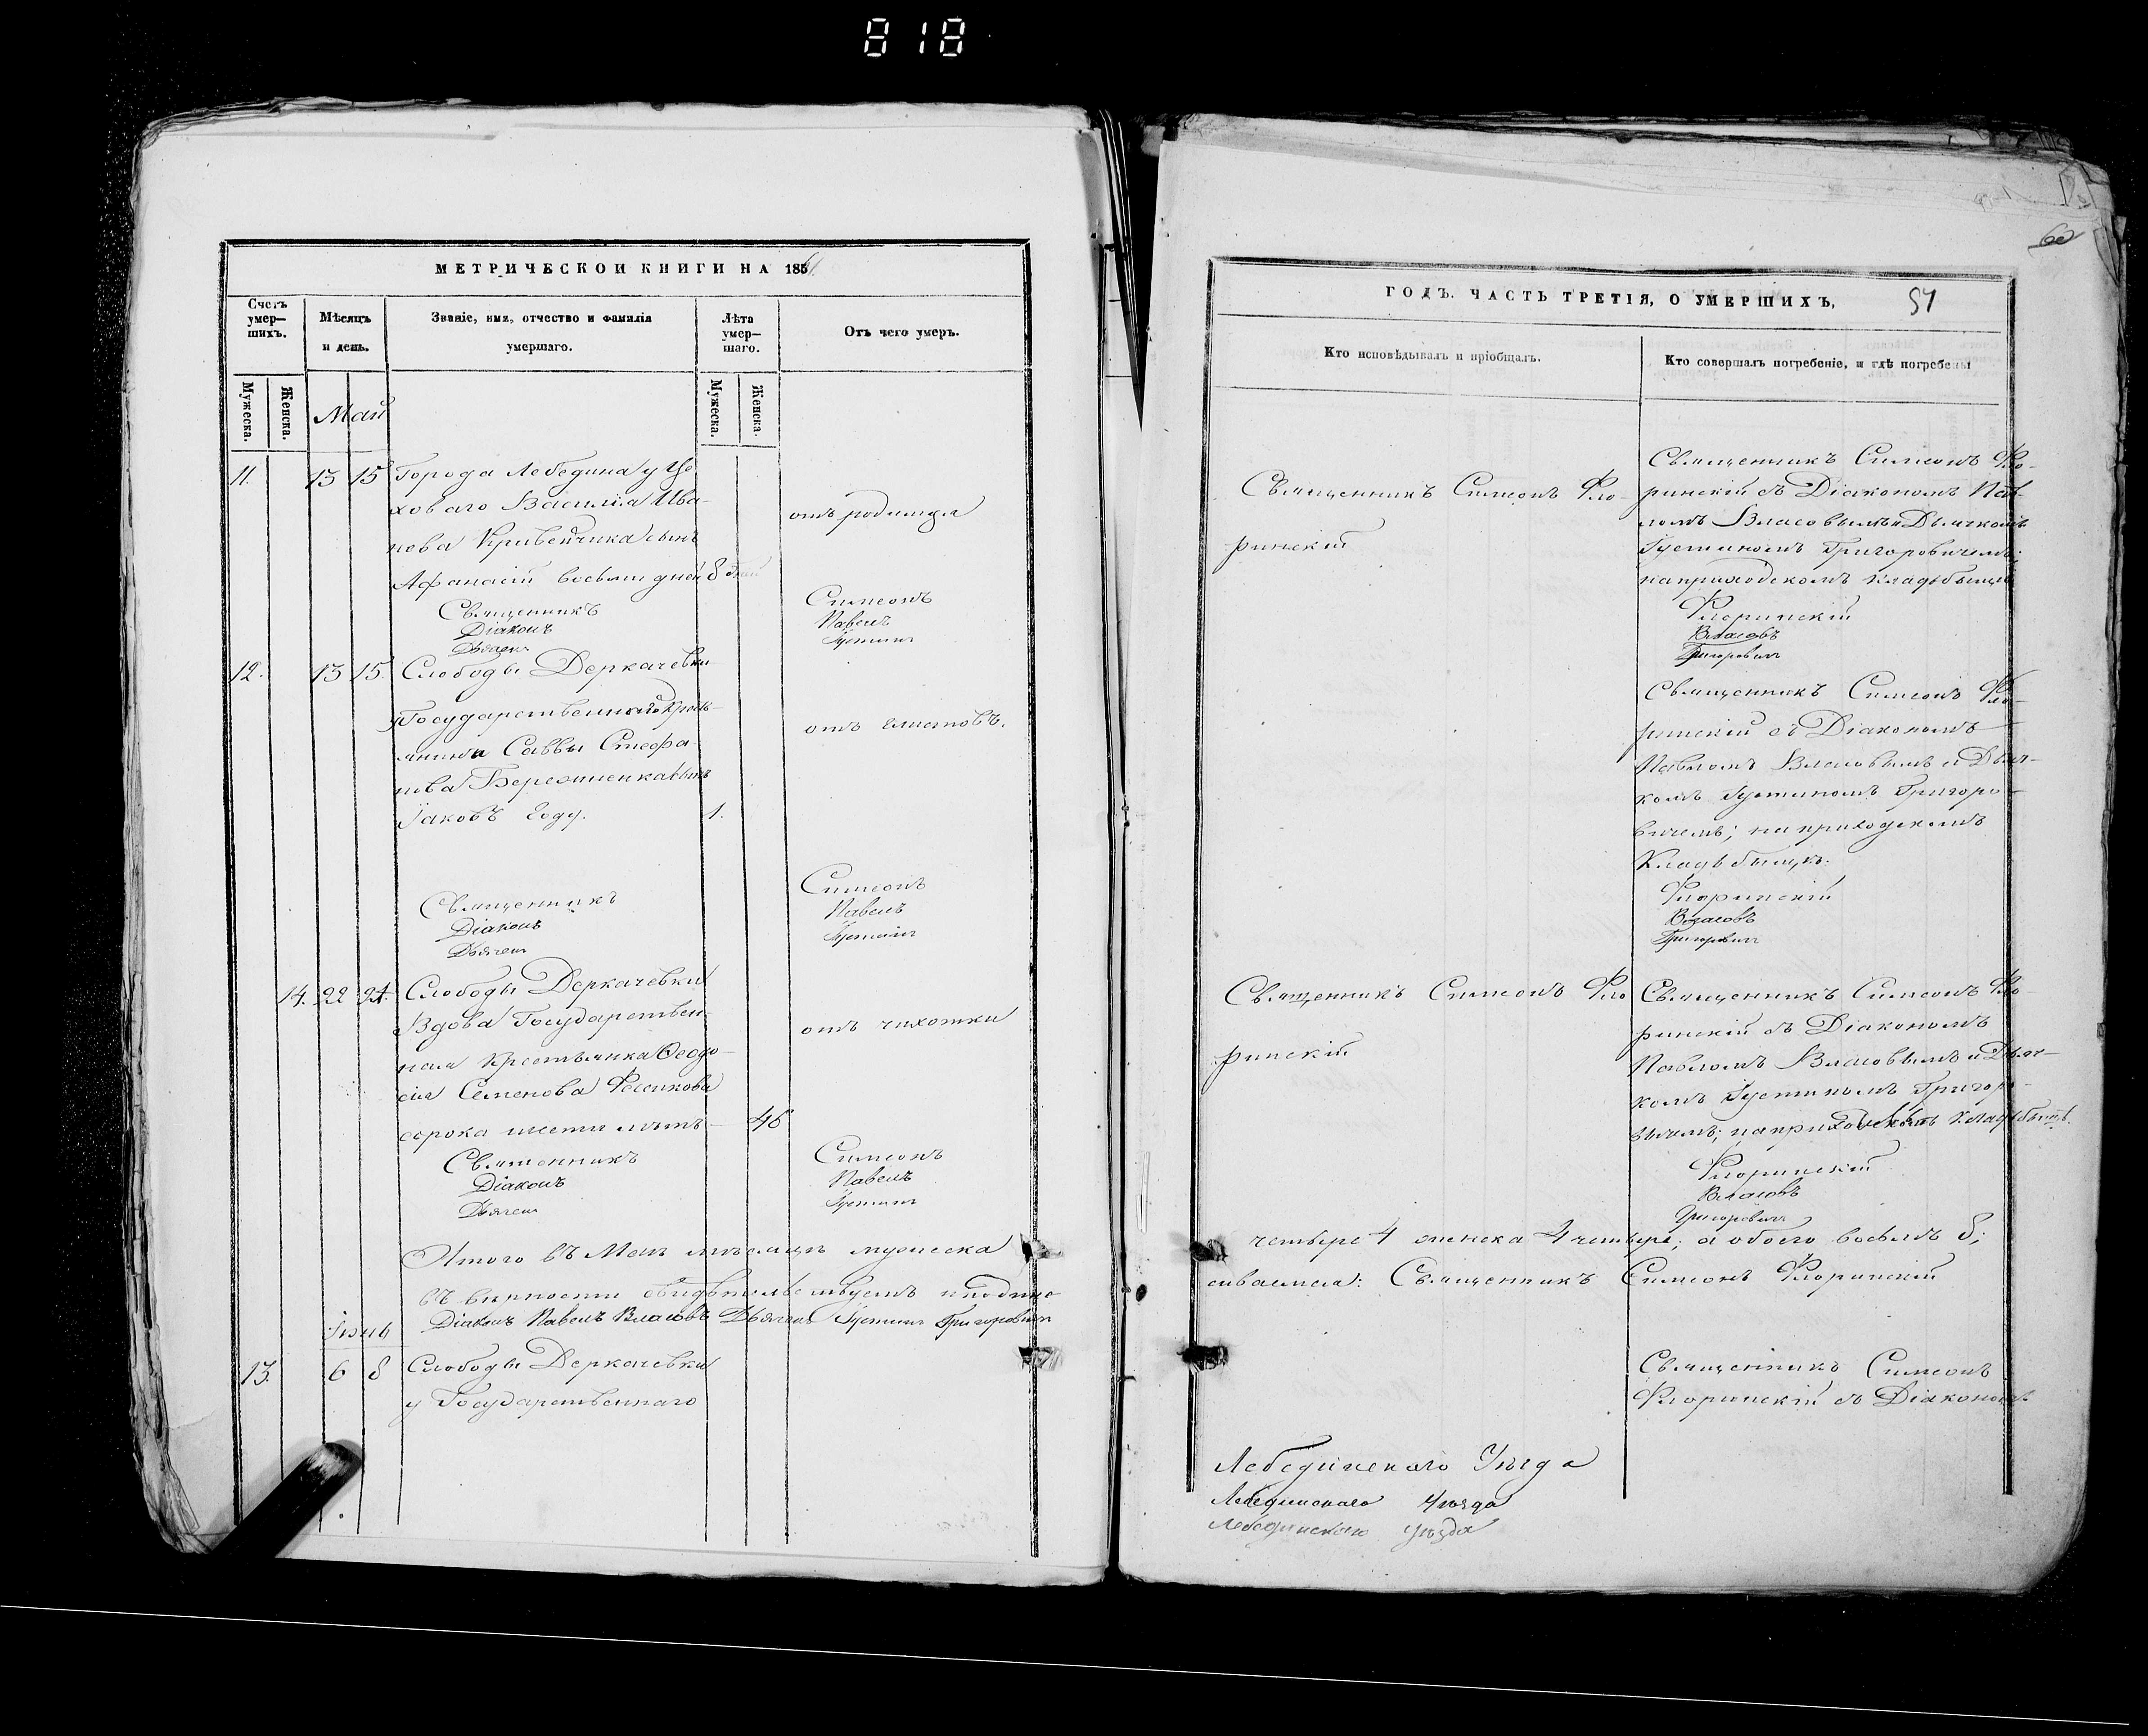 818
МЕТРИЧЕСКОЙ КНИГИ НА 1861
Счетъ умер-
шихъ.
Мѣсяцъ
и день.
Званіе, имя, отчество и фамилія
умершаго.
Лѣта
умер-
шаго.
Отъ чего умеръ.
Мужеска.
Женска.
Май
Мужеска.
Женска.
11. 13 15 Города Лебедина у Це
ховаго Василія Ива-
нова Кривенчика сынъ
Афанасій восьми дней 8 дней
отъ родимца
Священникъ Симеонъ
Діаконъ Павелъ
Дьячекъ Іустинъ
12. 13 15. Слободы Деркачевки
у Государственнаго Кресть-
янина Саввы Стефа-
нова Бережненка сынъ
Іаковъ Году. 1.
отъ глистовъ.
Священникъ Симеонъ
Діаконъ Павелъ
Дьячекъ Іустинъ
14. 22 24. Слободы Деркачевки
Вдова Государствен-
ная Крестьянка Ѳеодо-
сія Семенова Фесикова
сорока шести лѣтъ 46
отъ чихотки
Священникъ Симеонъ
Діаконъ Павелъ
Дьячекъ Іустинъ
Итого въ Маѣ мѣсяцѣ мужеска
въ вѣрности свидѣтельствуемъ и подпи-
Діаконъ Павелъ Власовъ Дьячекъ Іустинъ Григоровичъ
Іюнь
13. 6 8 Слободы Деркачевки
у Государственнаго
60
ГОДЪ. ЧАСТЬ ТРЕТІЯ, О УМЕРШИХЪ,
Кто исповѣдывалъ и пріобщалъ.
Кто совершалъ погребеніе, и гдѣ погребены
Священникъ Симеонъ Фло-
ринскій
Священникъ Симеонъ Фло-
ринскій съ Діакономъ Пав-
ломъ Власовымъ и Дьячкомъ
Іустиномъ Григоровичемъ;
на приходскомъ кладбыщѣ
Флоринскій
Власовъ
Григоровичъ
Священникъ Симеонъ Фло-
ринскій съ Діакономъ
Павломъ Власовымъ и Дьяч-
комъ Іустиномъ Григоро-
вичемъ; на приходскомъ
Кладьбыщѣ.
Флоринскій
Власовъ
Григоровичъ
Священникъ Симеонъ Фло
ринскій
Священникъ Симеонъ Фло-
ринскій съ Діакономъ
Павломъ Власовымъ и Дьяч-
комъ Іустиномъ Григоро-
вичемъ; на приходскомъ кладбыщѣ.
Флоринскій
Власовъ
Григоровичъ
четыре 4 женска 4 четыре; а обоего восемь 8;
сываемся: Священникъ Симеонъ Флоринскій
Священникъ Симеонъ
Флоринскій съ Діакономъ
Лебединскаго Уѣзда
Лебединскаго Уѣзда
Лебединскаго Уѣзда